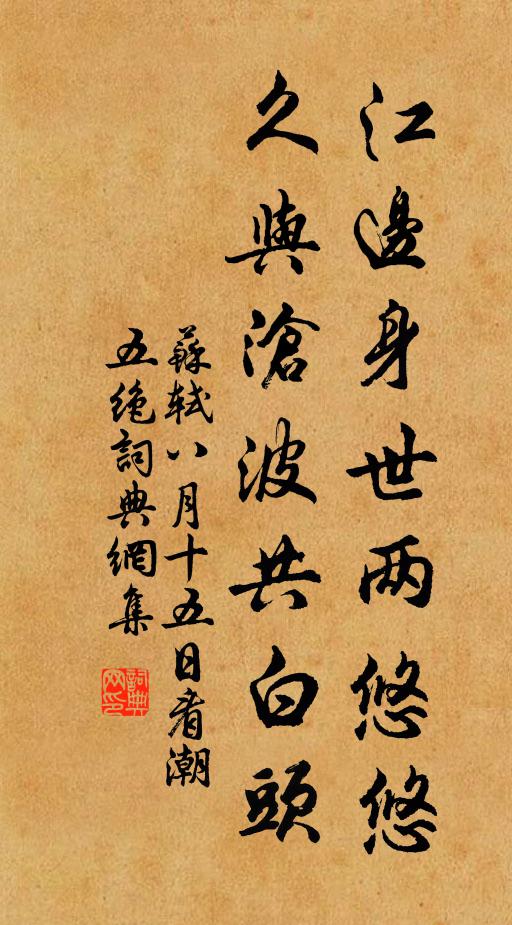 江邊身世两悠悠
久與滄波共白頭
蘇軾八月十五日看潮
五絶詞典網集
詞典网印